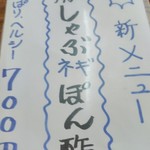 新メニュー
しゃぶネギぽん酢
ぱり、ヘルシー
700円